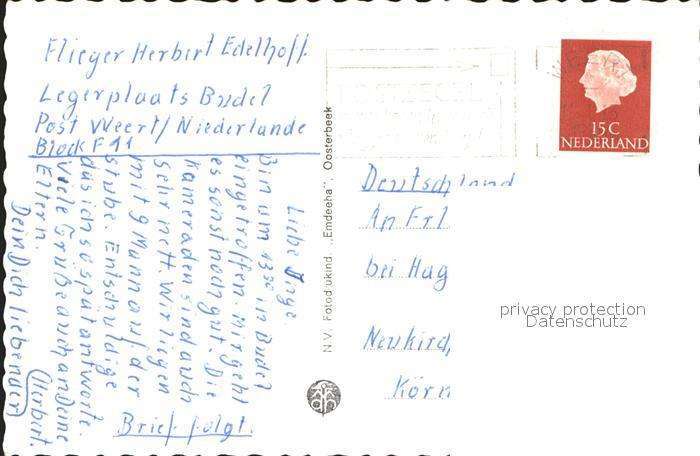 Flieger Herbert Edelhoff.
Legerplaats Budel
Post Weert/Niederlande
Block F 11
Liebe Inge.
Bin um 13³⁰ in Budel
eingetroffen. Mir geht
es sonst noch gut. Die
Kameraden sind auch
sehr nett. Wir liegen
mit 9 Mann auf der
Stube. Entschuldige
das ich so spät antworte.
Viele Grüße auch an Deine
Eltern.
Dein Dich liebender
Herbert.
Brief folgt.
N.V. Fotodrukind. „Emdeeha". Oosterbeek
15 C
NEDERLAND
Deutschland
An Frl
bei Hag
Neukirch
Körn
privacy protection
Datenschutz